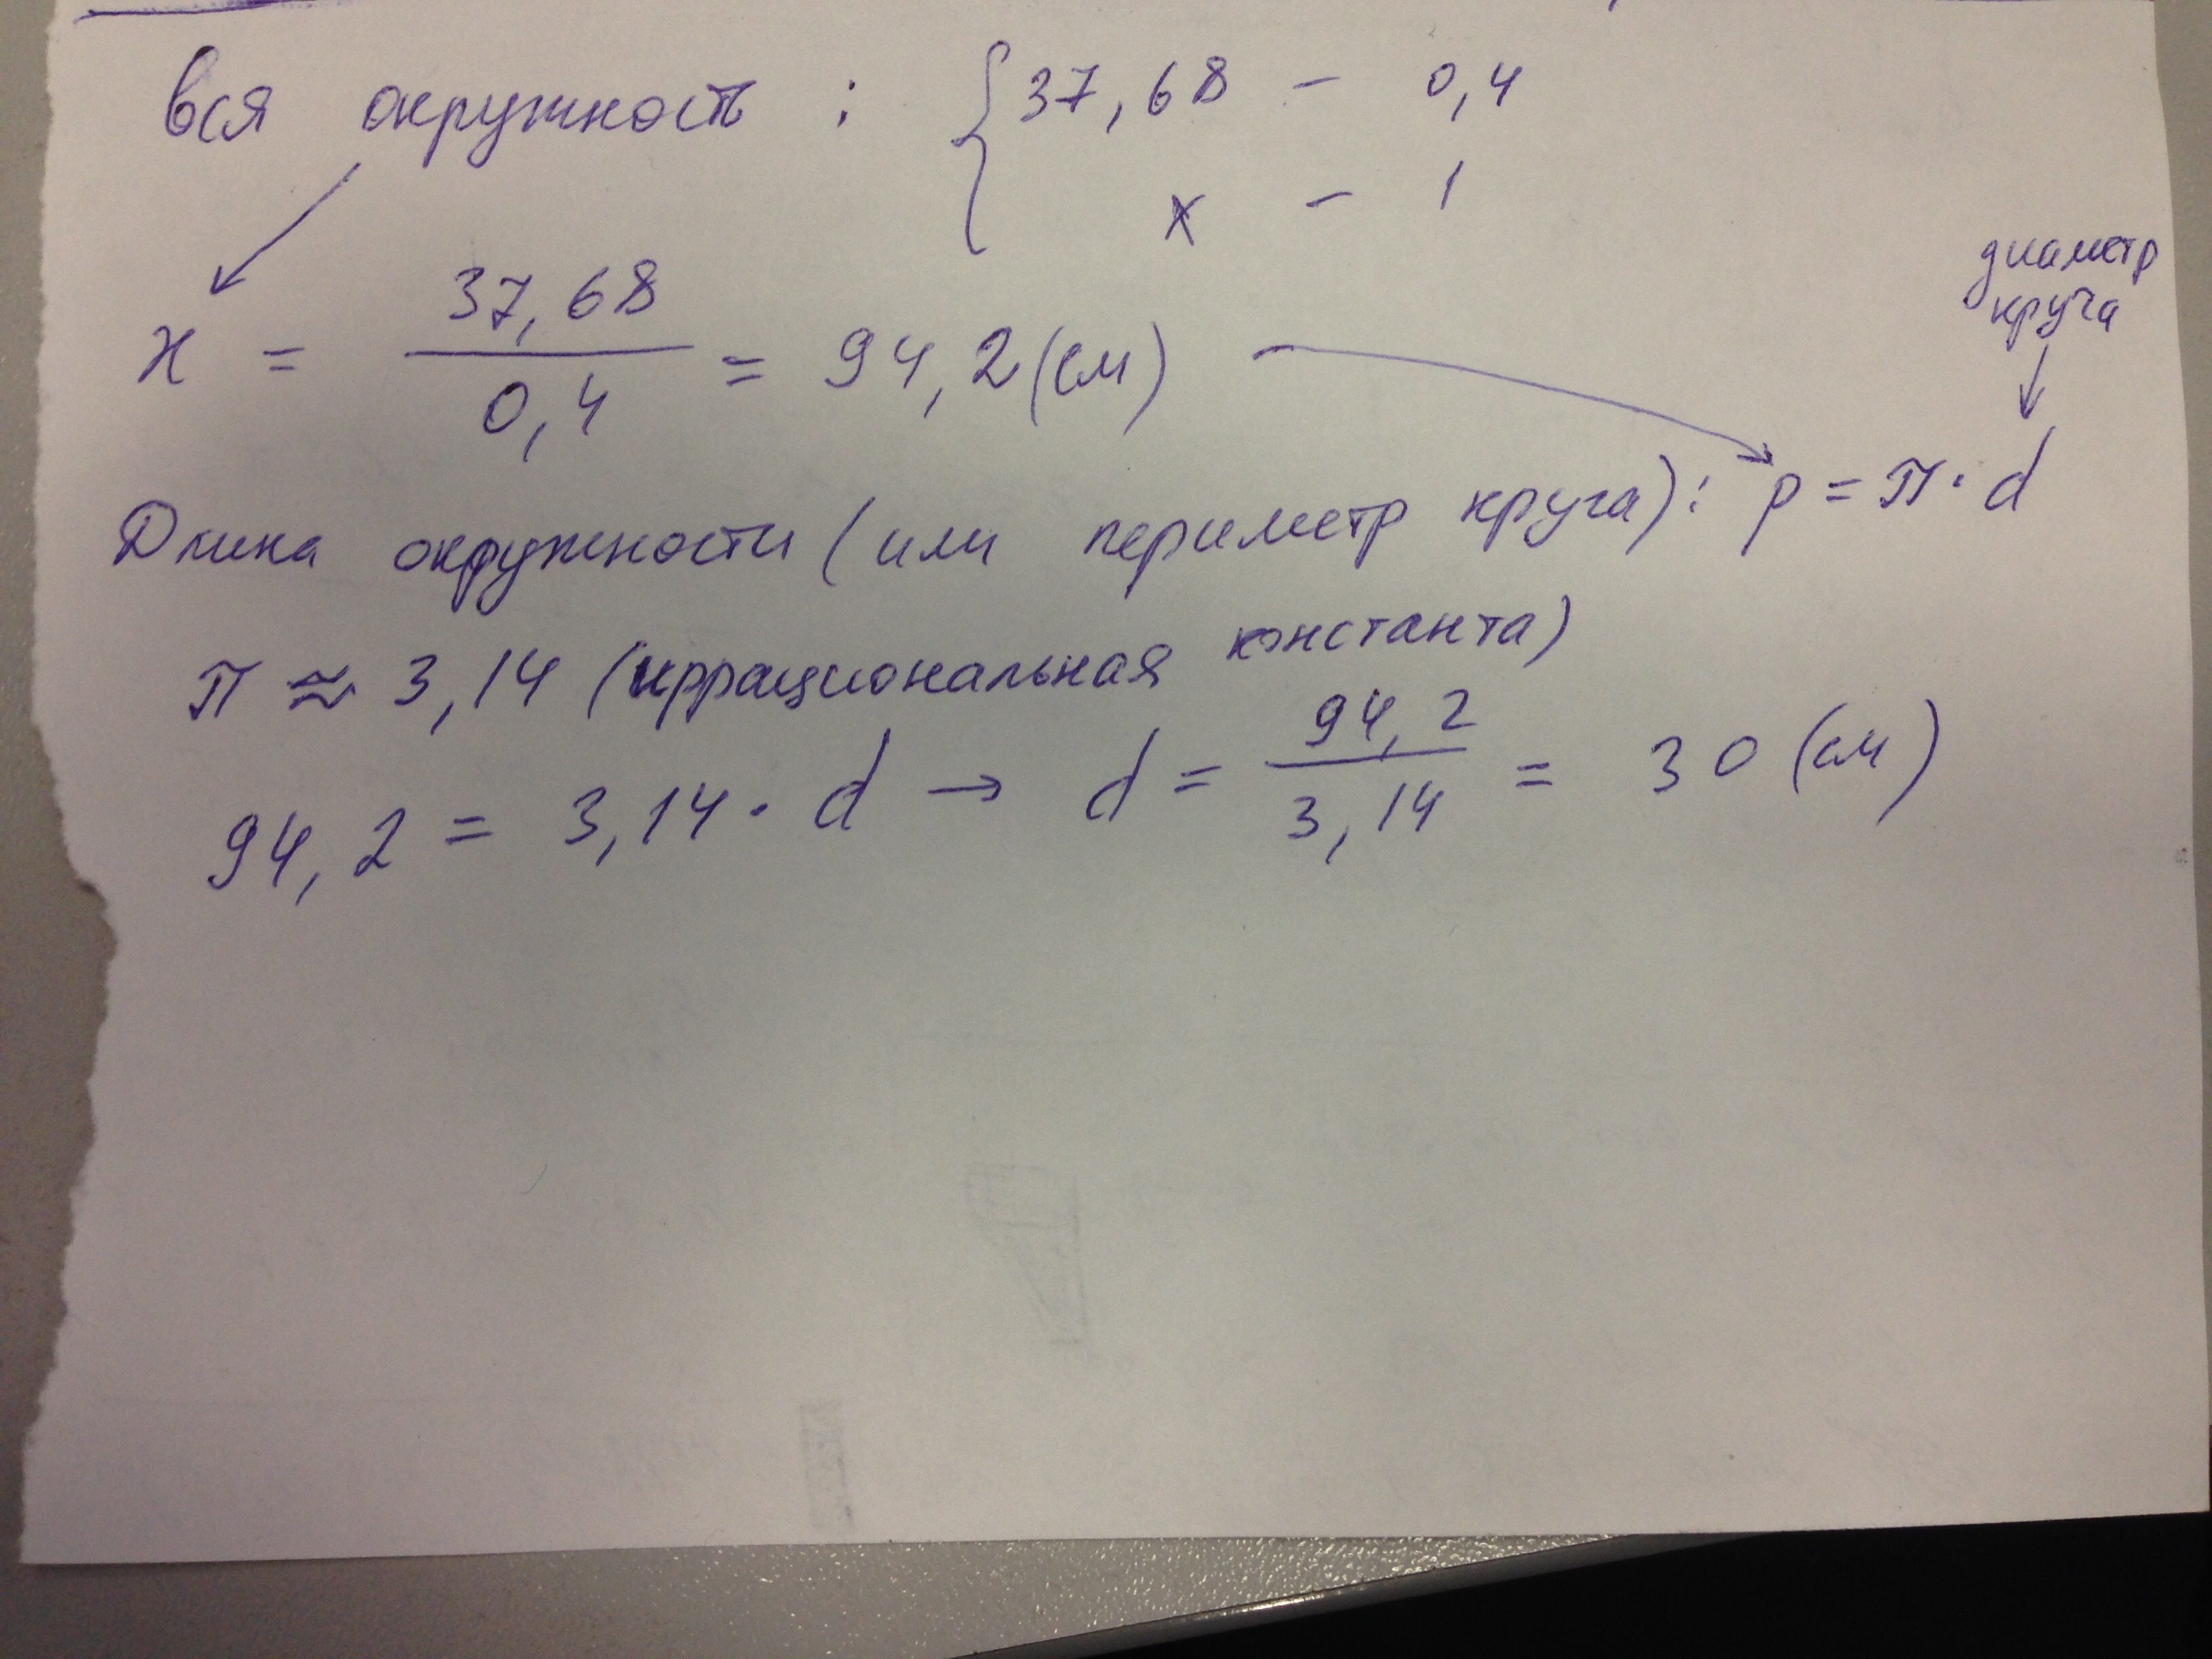 вся окружность : { 37,68 - 0,4
x - 1
диаметр
круга
x = 37,68 / 0,4 = 94,2 (см)
Длина окружности (или периметр круга): p = π · d
π ≈ 3,14 (иррациональная константа)
94,2 = 3,14 · d → d = 94,2 / 3,14 = 30 (см)